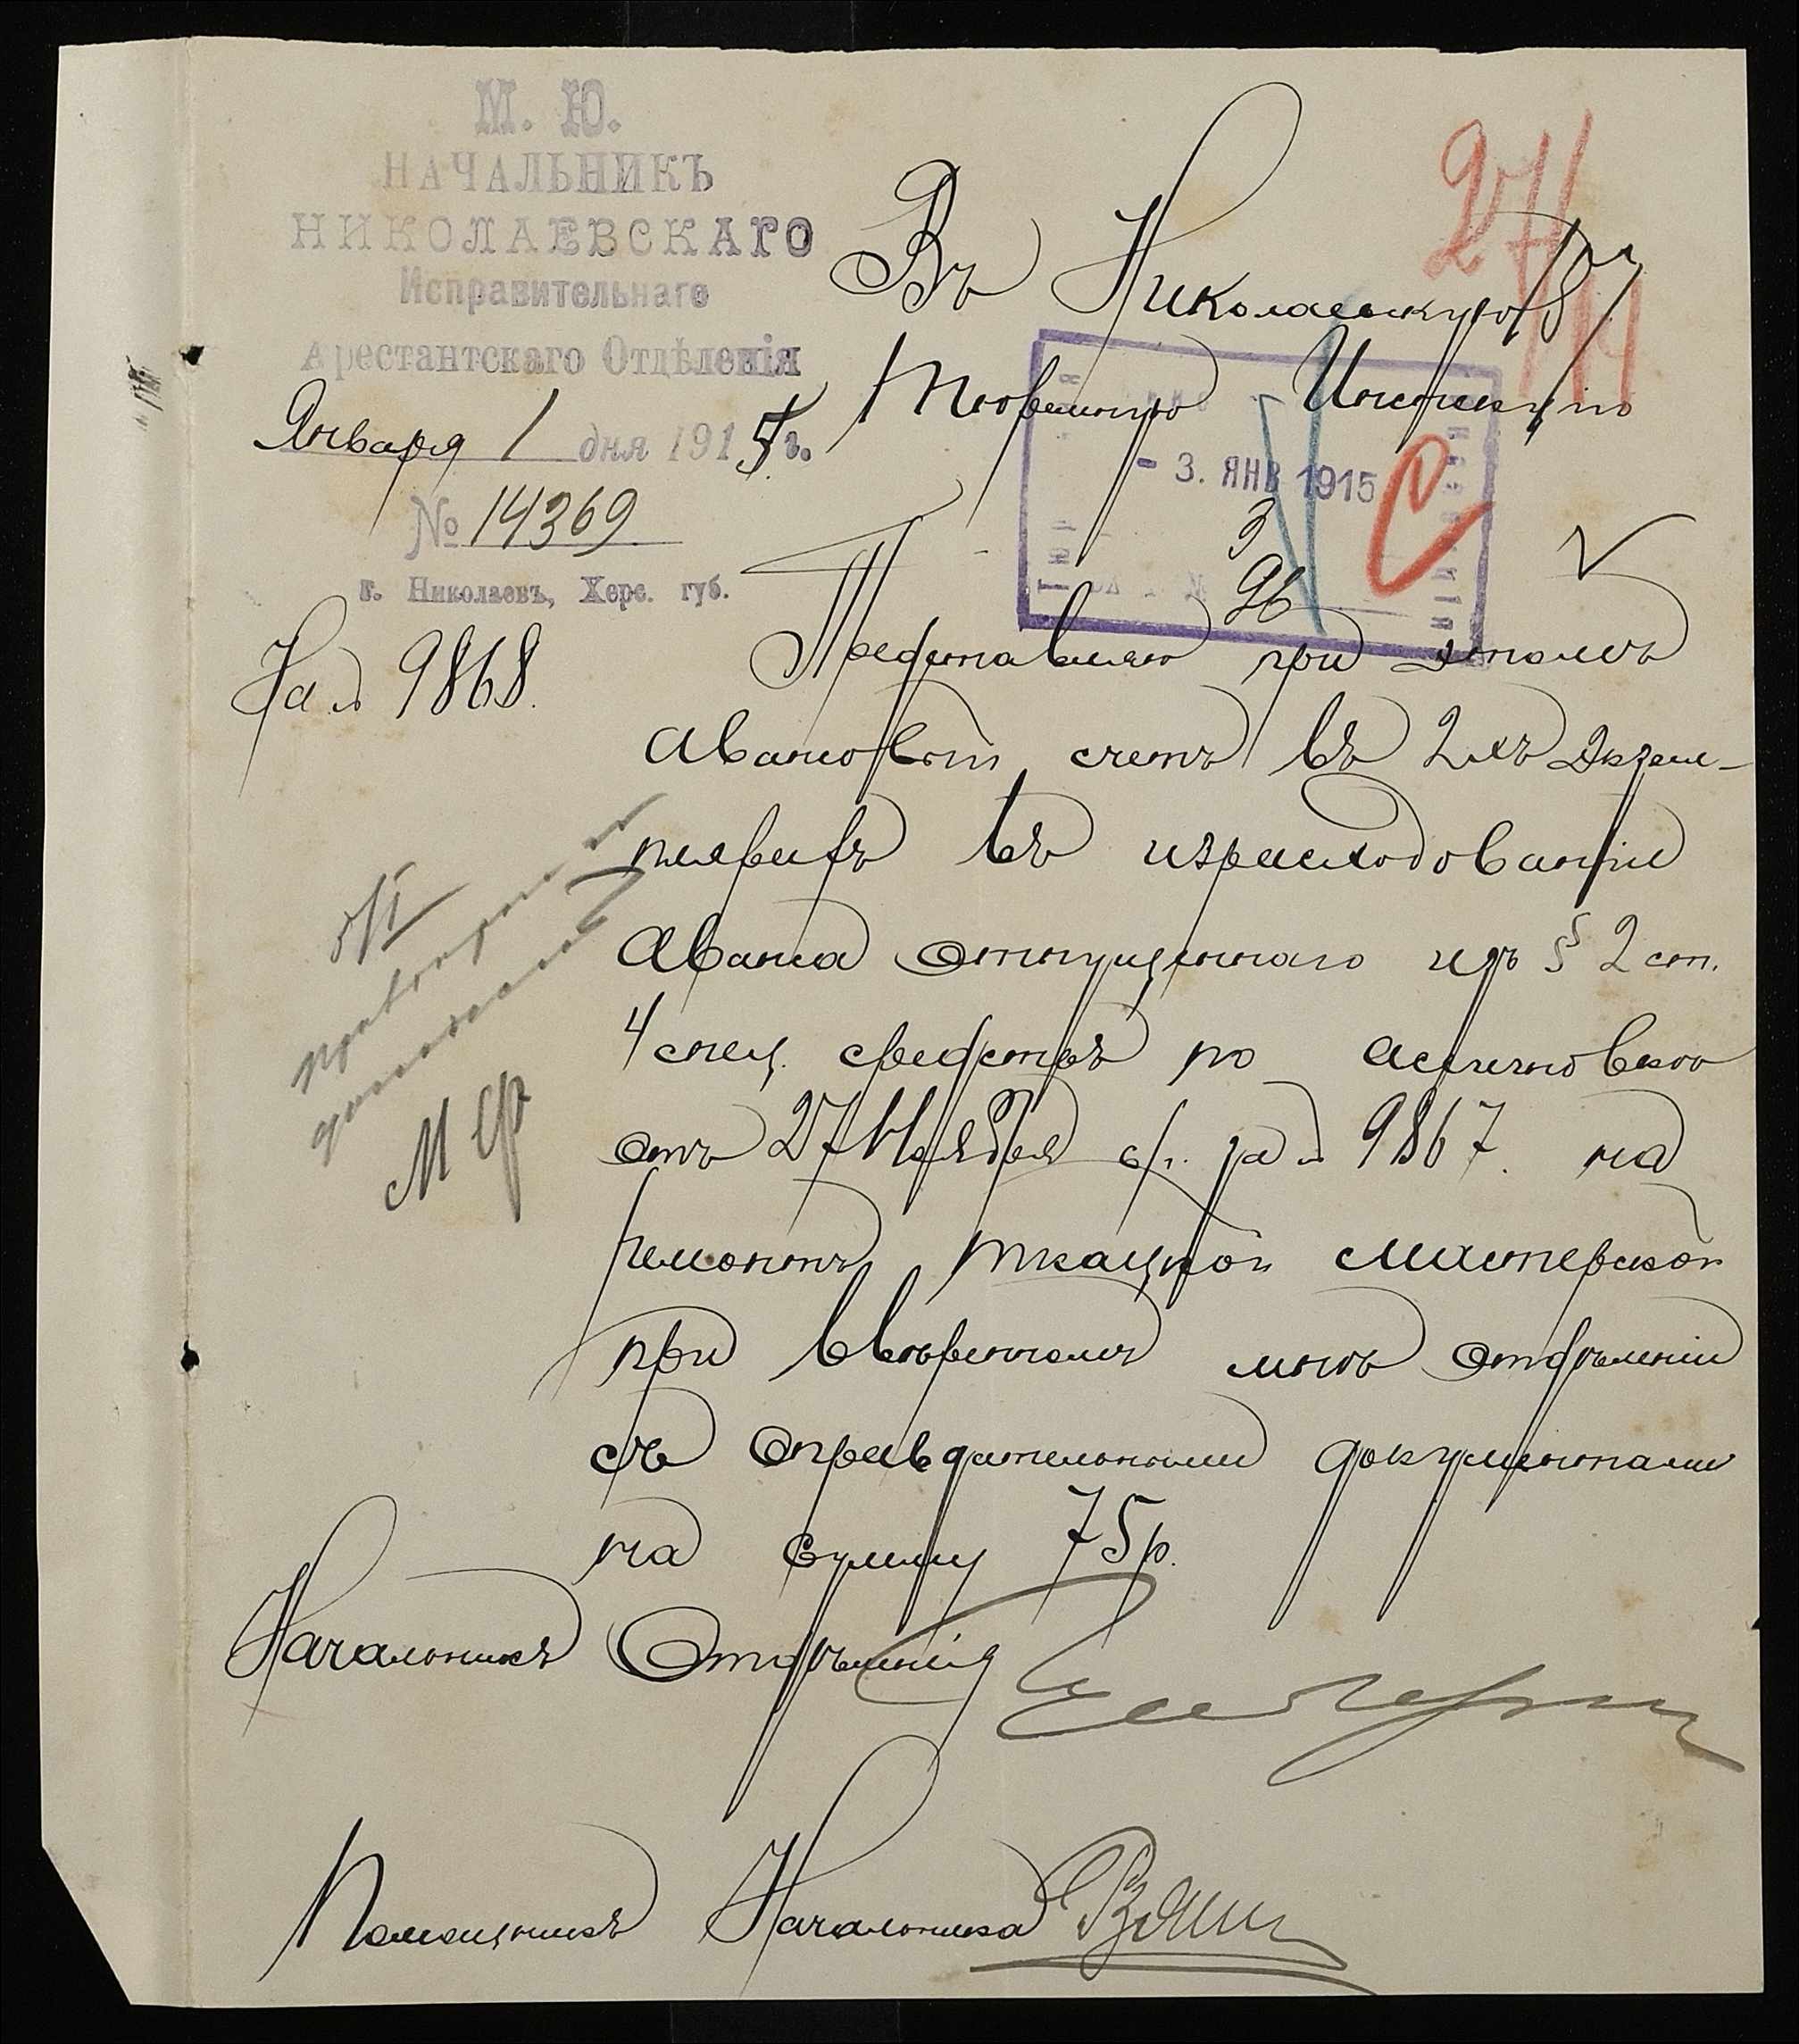 М. Ю.
НАЧАЛЬНИКЪ
НИКОЛАЕВСКАГО
Исправительнаго
Арестантскаго Отдѣленія
Января 1 дня 1915 г.
№ 14369
г. Николаевъ, Херс. губ.
На № 9868.
Въ Николаевскую
Тюремную Инспекцію
- 3. ЯНВ 1915
3
96
Представляю при этомъ
авансовый счетъ въ 2хъ экзем-
плярахъ въ израсходованіи
аванса отпущеннаго изъ § 2 ст.
4 спец. средствъ по ассигновкѣ
отъ 27 Ноября с/г. за № 9867. на
ремонтъ ткацкой мастерской
при ввѣренномъ мнѣ отдѣленіи
съ оправдательными документами
на сумму 75 р.
Начальникъ Отдѣленія
Помощникъ Начальника